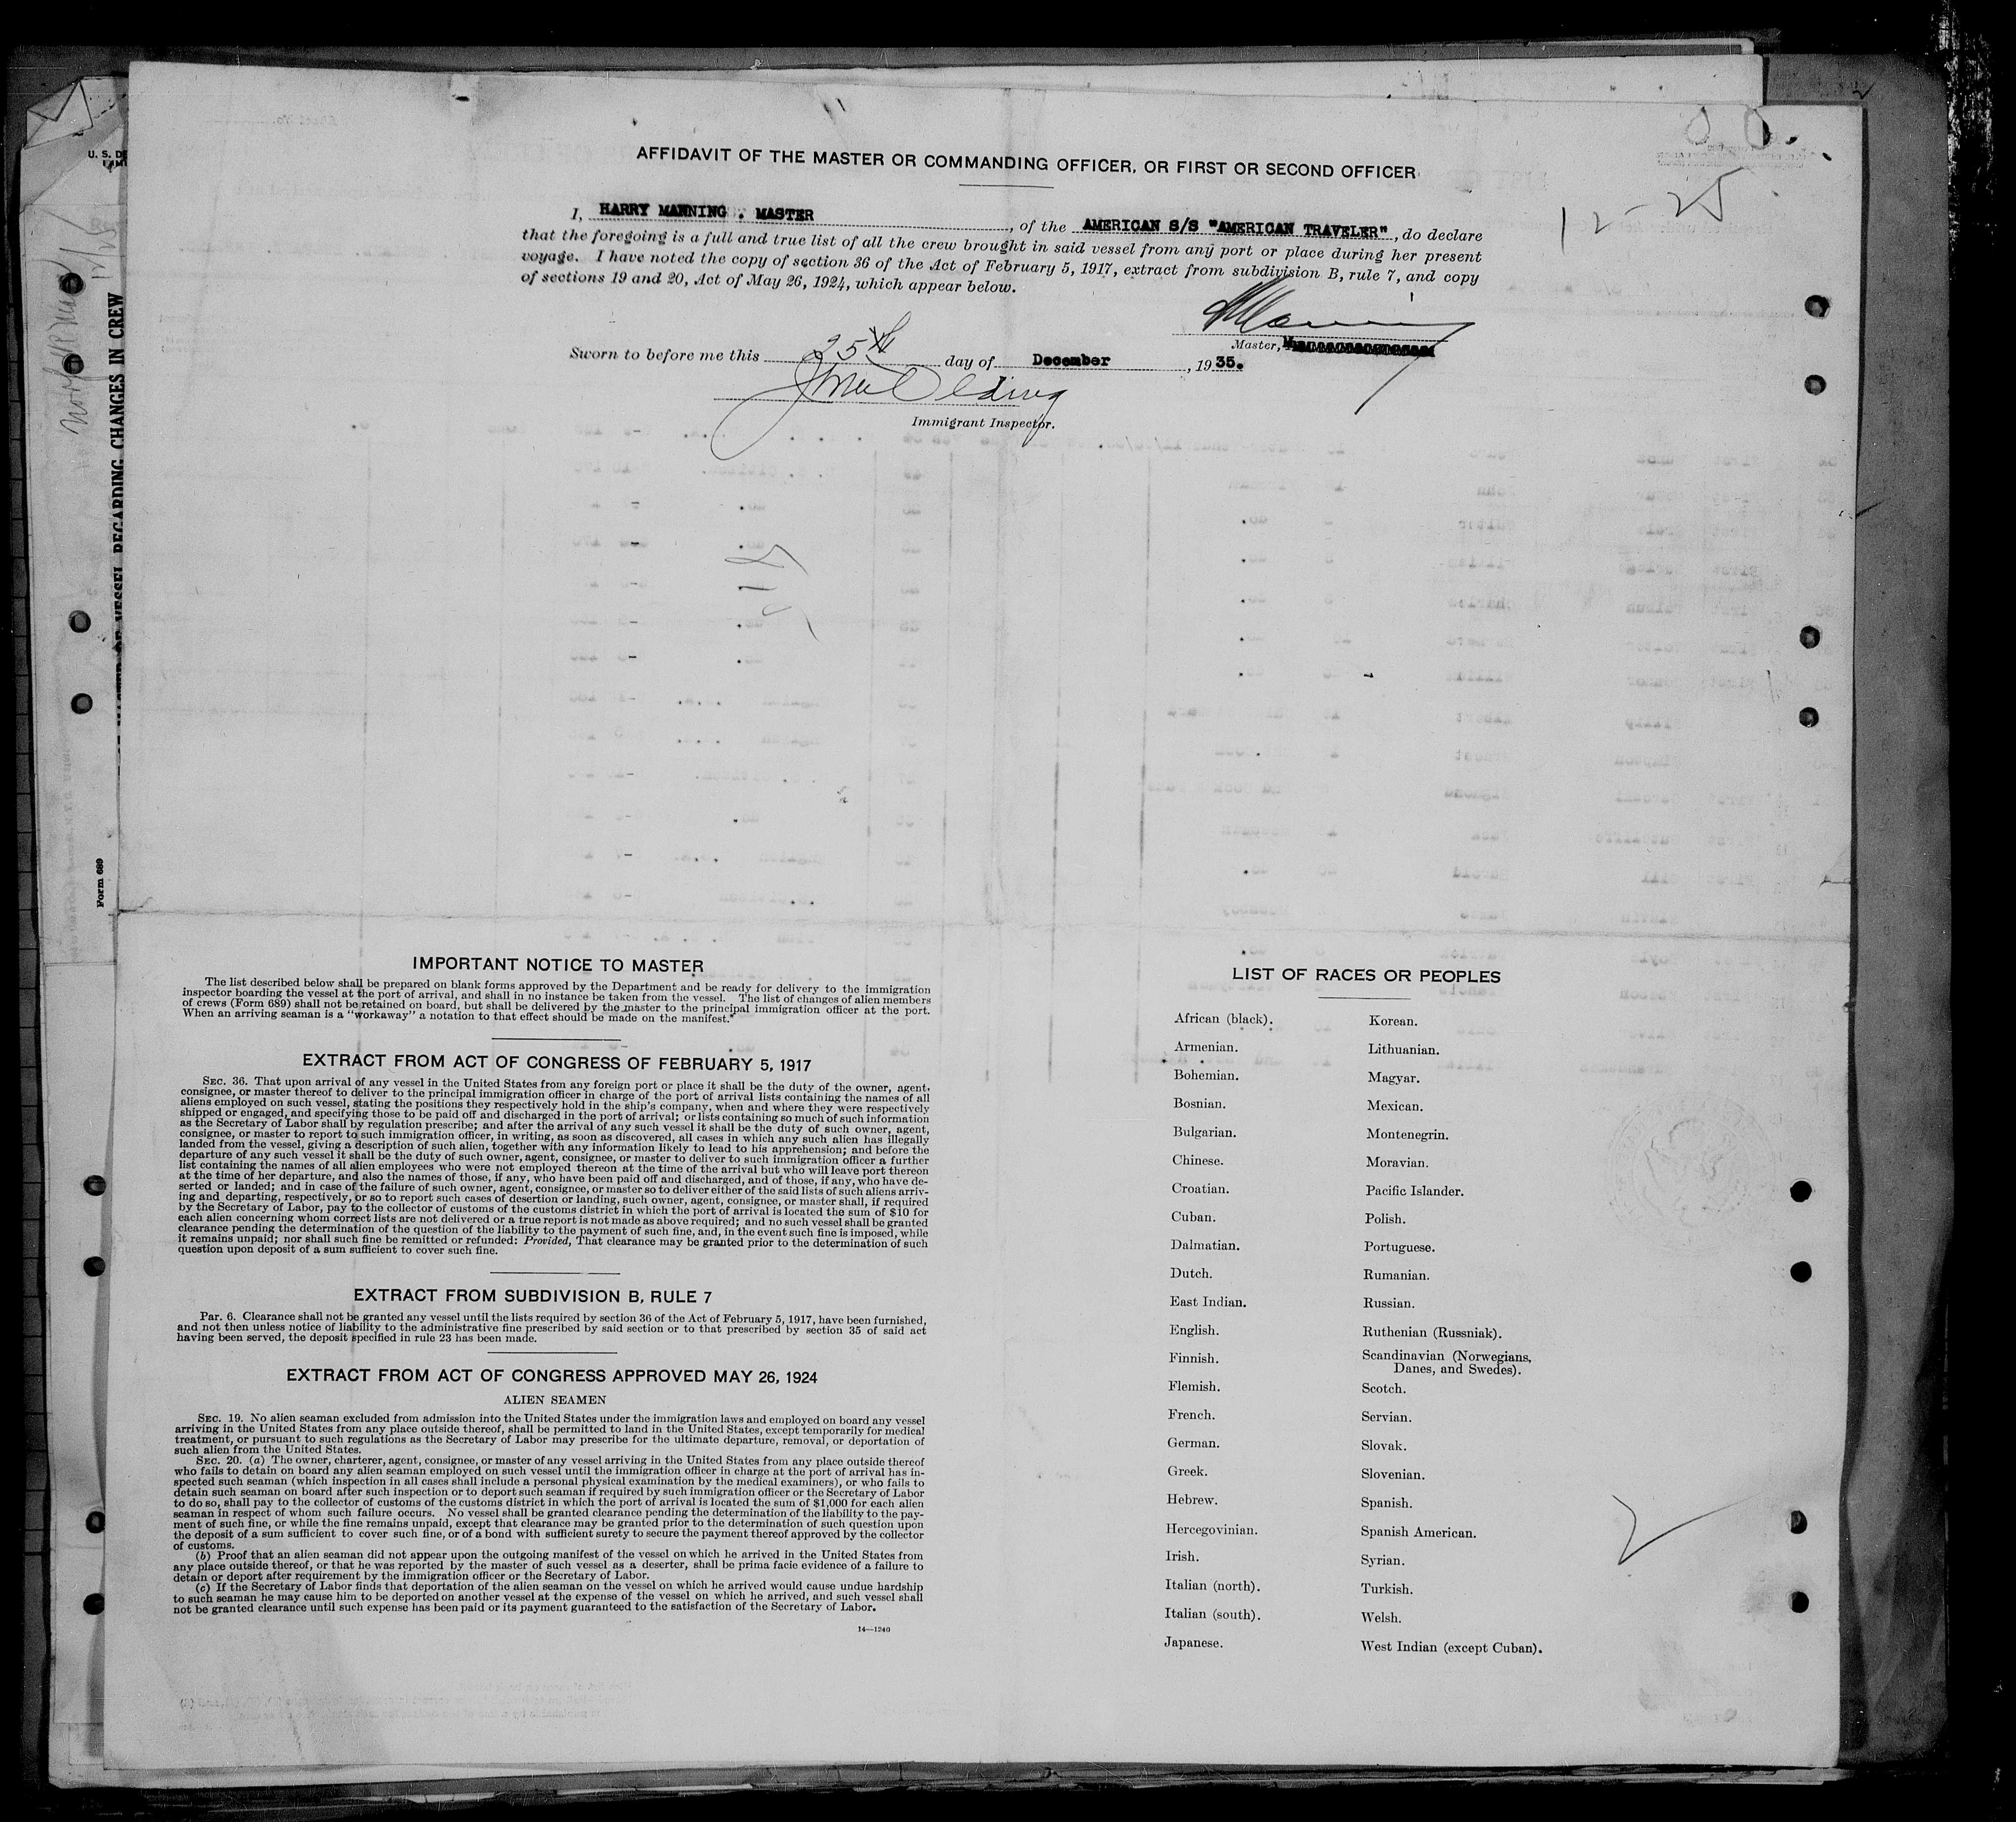 AFFIDAVIT OF THE MASTER OR COMMANDING OFFICER, OR FIRST OR SECOND OFFICER
12-25
I, HARRY MANNING . MASTER, of the AMERICAN S/S "AMERICAN TRAVELER", do declare
that the foregoing is a full and true list of all the crew brought in said vessel from any port or place during her present
voyage. I have noted the copy of section 36 of the Act of February 5, 1917, extract from subdivision B, rule 7, and copy
of sections 19 and 20, Act of May 26, 1924, which appear below.
HManning
Master,
Sworn to before me this 25th day of December, 1935.
Immigrant Inspector.
U. S. DE
CHANGES IN CREW
VESSEL REGARDING
Form 689
IMPORTANT NOTICE TO MASTER
The list described below shall be prepared on blank forms approved by the Department and be ready for delivery to the immigration
inspector boarding the vessel at the port of arrival, and shall in no instance be taken from the vessel. The list of changes of alien members
of crews (Form 689) shall not be retained on board, but shall be delivered by the master to the principal immigration officer at the port.
When an arriving seaman is a "workaway" a notation to that effect should be made on the manifest.
EXTRACT FROM ACT OF CONGRESS OF FEBRUARY 5, 1917
SEC. 36. That upon arrival of any vessel in the United States from any foreign port or place it shall be the duty of the owner, agent,
consignee, or master thereof to deliver to the principal immigration officer in charge of the port of arrival lists containing the names of all
aliens employed on such vessel, stating the positions they respectively hold in the ship's company, when and where they were respectively
shipped or engaged, and specifying those to be paid off and discharged in the port of arrival; or lists containing so much of such information
as the Secretary of Labor shall by regulation prescribe; and after the arrival of any such vessel it shall be the duty of such owner, agent,
consignee, or master to report to such immigration officer, in writing, as soon as discovered, all cases in which any such alien has illegally
landed from the vessel, giving a description of such alien, together with any information likely to lead to his apprehension; and before the
departure of any such vessel it shall be the duty of such owner, agent, consignee, or master to deliver to such immigration officer a further
list containing the names of all alien employees who were not employed thereon at the time of the arrival but who will leave port thereon
at the time of her departure, and also the names of those, if any, who have been paid off and discharged, and of those, if any, who have de-
serted or landed; and in case of the failure of such owner, agent, consignee, or master so to deliver either of the said lists of such aliens arriv-
ing and departing, respectively, or so to report such cases of desertion or landing, such owner, agent, consignee, or master shall, if required
by the Secretary of Labor, pay to the collector of customs of the customs district in which the port of arrival is located the sum of $10 for
each alien concerning whom correct lists are not delivered or a true report is not made as above required; and no such vessel shall be granted
clearance pending the determination of the question of the liability to the payment of such fine, and, in the event such fine is imposed, while
it remains unpaid; nor shall such fine be remitted or refunded: Provided, That clearance may be granted prior to the determination of such
question upon deposit of a sum sufficient to cover such fine.
EXTRACT FROM SUBDIVISION B, RULE 7
PAR. 6. Clearance shall not be granted any vessel until the lists required by section 36 of the Act of February 5, 1917, have been furnished,
and not then unless notice of liability to the administrative fine prescribed by said section or to that prescribed by section 35 of said act
having been served, the deposit specified in rule 23 has been made.
EXTRACT FROM ACT OF CONGRESS APPROVED MAY 26, 1924
ALIEN SEAMEN
SEC. 19. No alien seaman excluded from admission into the United States under the immigration laws and employed on board any vessel
arriving in the United States from any place outside thereof, shall be permitted to land in the United States, except temporarily for medical
treatment, or pursuant to such regulations as the Secretary of Labor may prescribe for the ultimate departure, removal, or deportation of
such alien from the United States.
SEC. 20. (a) The owner, charterer, agent, consignee, or master of any vessel arriving in the United States from any place outside thereof
who fails to detain on board any alien seaman employed on such vessel until the immigration officer in charge at the port of arrival has in-
spected such seaman (which inspection in all cases shall include a personal physical examination by the medical examiners), or who fails to
detain such seaman on board after such inspection or to deport such seaman if required by such immigration officer or the Secretary of Labor
to do so, shall pay to the collector of customs of the customs district in which the port of arrival is located the sum of $1,000 for each alien
seaman in respect of whom such failure occurs. No vessel shall be granted clearance pending the determination of the liability to the pay-
ment of such fine, or while the fine remains unpaid, except that clearance may be granted prior to the determination of such question upon
the deposit of a sum sufficient to cover such fine, or of a bond with sufficient surety to secure the payment thereof approved by the collector
of customs.
(b) Proof that an alien seaman did not appear upon the outgoing manifest of the vessel on which he arrived in the United States from
any place outside thereof, or that he was reported by the master of such vessel as a deserter, shall be prima facie evidence of a failure to
detain or deport after requirement by the immigration officer or the Secretary of Labor.
(c) If the Secretary of Labor finds that deportation of the alien seaman on the vessel on which he arrived would cause undue hardship
to such seaman he may cause him to be deported on another vessel at the expense of the vessel on which he arrived, and such vessel shall
not be granted clearance until such expense has been paid or its payment guaranteed to the satisfaction of the Secretary of Labor.
14—1240
LIST OF RACES OR PEOPLES
African (black).
Armenian.
Bohemian.
Bosnian.
Bulgarian.
Chinese.
Croatian.
Cuban.
Dalmatian.
Dutch.
East Indian.
English.
Finnish.
Flemish.
French.
German.
Greek.
Hebrew.
Hercegovinian.
Irish.
Italian (north).
Italian (south).
Japanese.
Korean.
Lithuanian.
Magyar.
Mexican.
Montenegrin.
Moravian.
Pacific Islander.
Polish.
Portuguese.
Rumanian.
Russian.
Ruthenian (Russniak).
Scandinavian (Norwegians,
Danes, and Swedes).
Scotch.
Servian.
Slovak.
Slovenian.
Spanish.
Spanish American.
Syrian.
Turkish.
Welsh.
West Indian (except Cuban).